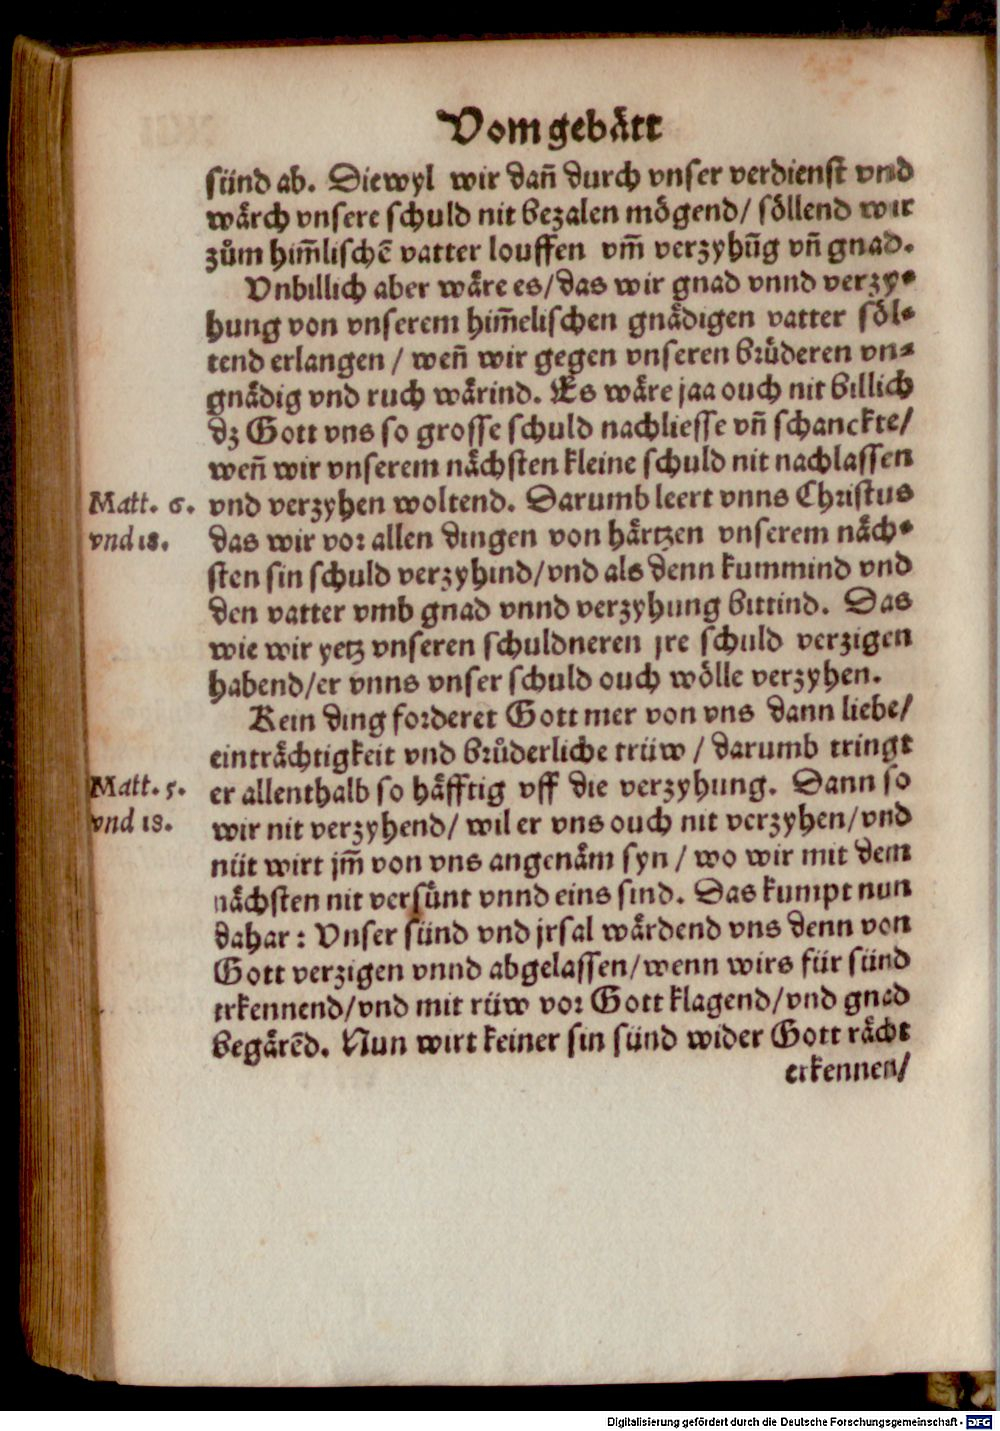 Vom gebätt
sünd ab. Diewyl wir dañ durch vnser verdienst vnd
wärch vnsere schuld nit bezalen mögend/ söllend wir
zům him̃lischē vatter louffen vm̃ verzyhūg vñ gnad.
Vnbillich aber wäre es/ das wir gnad vnnd verzy-
hung von vnserem him̃elischen gnädigen vatter söl-
tend erlangen / weñ wir gegen vnseren brůderen vn-
gnädig vnd ruch wärind. Es wäre jaa ouch nit billich
dz Gott vns so grosse schuld nachliesse vñ schanckte/
weñ wir vnserem nächsten kleine schuld nit nachlassen
Matt. 6. vnd verzyhen woltend. Darumb leert vnns Christus
vnd 18. das wir vor allen dingen von härtzen vnserem näch-
sten sin schuld verzyhind/ vnd als denn kummind vnd
den vatter vmb gnad vnnd verzyhung bittind. Das
wie wir yetz vnseren schuldneren jre schuld verzigen
habend/ er vnns vnser schuld ouch wölle verzyhen.
Kein ding forderet Gott mer von vns dann liebe/
einträchtigkeit vnd brůderliche trüw / darumb tringt
Matt. 5. er allenthalb so häfftig vff die verzyhung. Dann so
vnd 18. wir nit verzyhend/ wil er vns ouch nit verzyhen/ vnd
nüt wirt jm̃ von vns angenäm syn / wo wir mit dem
nächsten nit versünt vnnd eins sind. Das kumpt nun
dahar : Vnser sünd vnd jrsal wärdend vns denn von
Gott verzigen vnnd abgelassen/ wenn wirs für sünd
erkennend/ vnd mit rüw vor Gott klagend/ vnd gnad
begärēd. Nun wirt keiner sin sünd wider Gott rächt
erkennen/
Digitalisierung gefördert durch die Deutsche Forschungsgemeinschaft - DFG